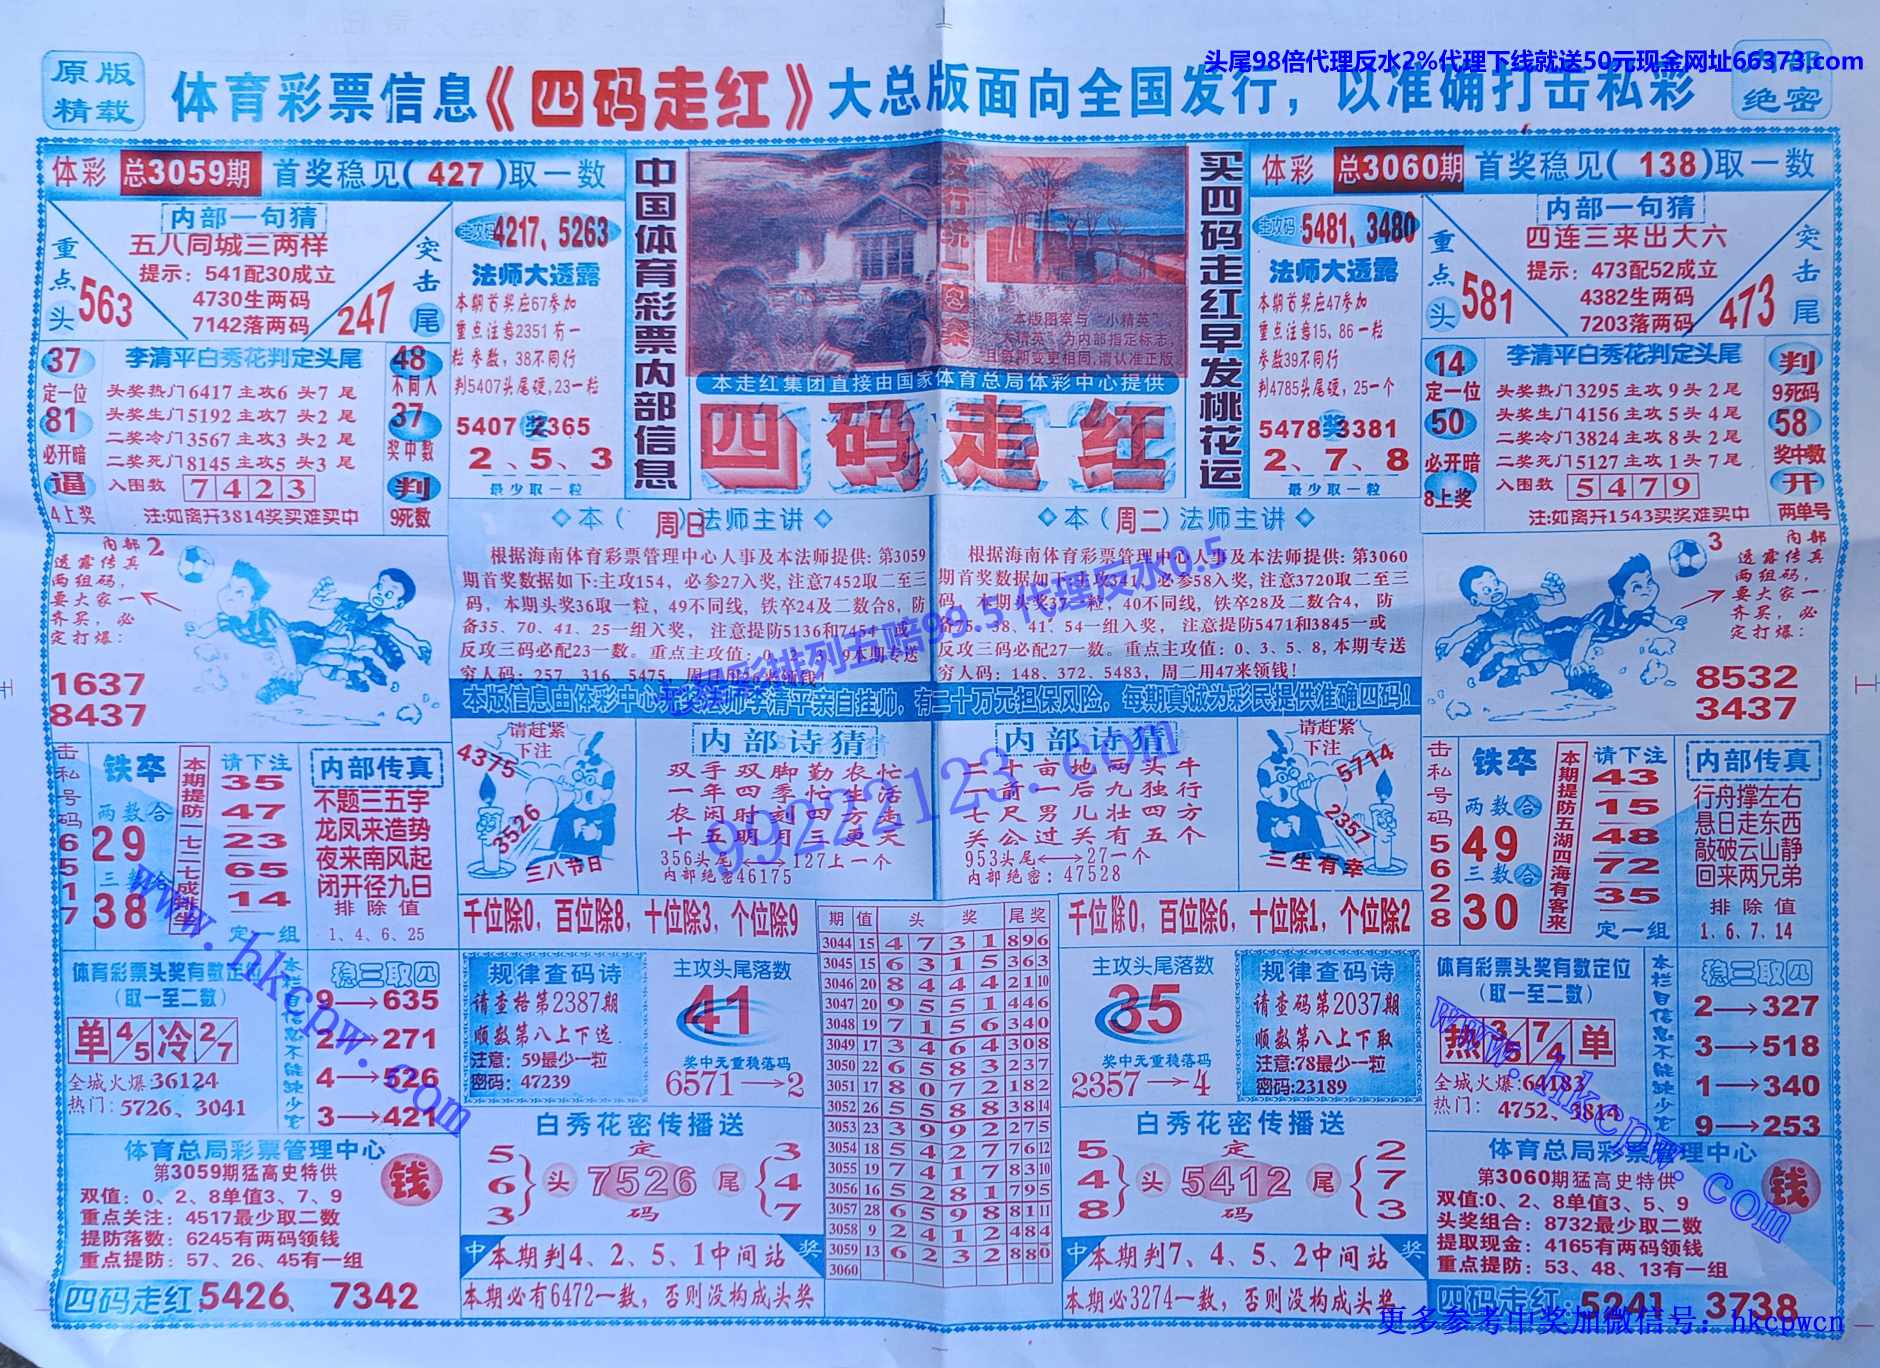 头尾98倍代理反水2%代理下线就送50元现金网址66373.com
原版
精载
体育彩票信息《四码走红》大总版面向全国发行，以准确打击私彩
绝密
体彩 总3059期 首奖稳见(427)取一数
内部一句猜
五八同城三两样
提示：541配30成立
4730生两码
7142落两码
重点头
563
突击尾
247
主攻码 4217、5263
法师大透露
本期首奖应67参加
重点注意2351有一
粒参数，38不同行
判5407头尾硬,23一粒
5407 奖 2365
2、5、3
最少取一粒
37
定一位
81
必开暗
逼
4上奖
李清平白秀花判定头尾
头奖热门6417主攻6头7尾
头奖生门5192主攻7头2尾
二奖冷门3567主攻3头2尾
二奖死门8145主攻5头3尾
入围数 7423
注:如离开3814奖买难买中
48
不同入
37
奖中数
判
9死数
中国体育彩票内部信息
发行统一图案
本版图案与“小精英”、
“大精英”为内部指定标志，
且每期变更相同,请认准正版。
本走红集团直接由国家体育总局体彩中心提供
四码走红
买四码走红早发桃花运
体彩 总3060期 首奖稳见(138)取一数
主攻码 5481、3480
法师大透露
本期首奖应47参加
重点注意15、86一粒
参数39不同行
判4785头尾硬,25一个
5478 奖 3381
2、7、8
最少取一粒
内部一句猜
四连三来出大六
提示：473配52成立
4382生两码
7203落两码
重点头
581
突击尾
473
14
定一位
50
必开暗
8上奖
李清平白秀花判定头尾
头奖热门3295主攻9头2尾
头奖生门4156主攻5头4尾
二奖冷门3824主攻8头2尾
二奖死门5127主攻1头7尾
入围数 5479
注:如离开1543买奖难买中
判
9死码
58
奖中数
开
两单号
内部2
透露传真
两组码，
要大家一
齐买，必
定打爆：
1637
8437
◇本（周日）法师主讲◇
根据海南体育彩票管理中心人事及本法师提供：第3059
期首奖数据如下:主攻154，必参27入奖,注意7452取二至三
码，本期头奖36取一粒，49不同线，铁卒24及二数合8，防
备35、70、41、25一组入奖，注意提防5136和7454一或
反攻三码必配23一数。重点主攻值：0、2、3、9本期专送
穷人码：257、316、5475，周日用26来领钱！
◇本（周二）法师主讲◇
根据海南体育彩票管理中心人事及本法师提供：第3060
期首奖数据如下:主攻341，必参58入奖,注意3720取二至三
码，本期头奖37一粒，40不同线，铁卒28及二数合4，防
备75、38、41、54一组入奖，注意提防5471和3845一或
反攻三码必配27一数。重点主攻值：0、3、5、8,本期专送
穷人码：148、372、5483，周二用47来领钱！
本版信息由体彩中心头奖法师李清平亲自挂帅，有二十万元担保风险，每期真诚为彩民提供准确四码！
3
内部
透露传真
两组码，
要大家一
齐买，必
定打爆：
8532
3437
无极彩排列五赔99.5 代理反水0.5
99222123.com
击私号码6517
铁卒
两数合
29
三数合
38
本期提防一七二七成排坐
请下注
35
47
23
65
14
定一组
内部传真
不题三五字
龙凤来造势
夜来南风起
闭开径九日
排除值
1、4、6、25
请赶紧
下注
4375
3526
三八节日
内部诗猜
双手双脚勤农忙
一年四季忙生活
农闲时刻四方走
十五明月三更天
356头尾⟷127上一个
内部绝密46175
内部诗猜
二十亩地两头牛
一前一后九独行
七尺男儿壮四方
关公过关有五个
953头尾⟷27一个
内部绝密：47528
请赶紧
下注
5714
2357
三生有幸
击私号码5628
铁卒
两数合
49
三数合
30
本期提防五湖四海有客来
请下注
43
15
48
72
35
定一组
内部传真
行舟撑左右
悬日走东西
敲破云山静
回来两兄弟
排除值
1、6、7、14
千位除0，百位除8，十位除3，个位除9
千位除0，百位除6，十位除1，个位除2
体育彩票头奖有数定位
（取一至二数）
单 4/5 冷 2/7
全城火爆:36124
热门：5726、3041
本栏目信息不能缺少它
稳三取四
9→635
2→271
4→526
3→421
规律查码诗
请查格第2387期
顺数第八上下选
注意：59最少一粒
密码：47239
主攻头尾落数
41
奖中无重稳落码
6571→2
期 值 头奖 尾奖
3044 15 4731 896
3045 15 6315 363
3046 20 8444 2110
3047 20 9551 446
3048 19 7156 340
3049 17 3464 308
3050 22 6583 237
3051 17 8072 182
3052 26 5588 3814
3053 23 3992 275
3054 18 5427 7612
3055 19 7417 8310
3056 16 5281 795
3057 28 6598 8111
3058 9 2412 484
3059 13 6232 880
3060
主攻头尾落数
35
奖中无重稳落码
2357→4
规律查码诗
请查码第2037期
顺数第八上下取
注意:78最少一粒
密码:23189
体育彩票头奖有数定位
（取一至二数）
热 3/5 7/4 单
全城火爆:64183
热门：4752、3814
本栏目信息不能缺少它
稳三取四
2→327
3→518
1→340
9→253
体育总局彩票管理中心
第3059期猛高史特供
钱
双值：0、2、8单值3、7、9
重点关注：4517最少取二数
提防落数：6245有两码领钱
重点提防：57、26、45有一组
四码走红:5426、7342
白秀花密传播送
563 头 定 7526 码 尾 347
中 本期判4、2、5、1中间站 奖
本期必有6472一数，否则没构成头奖
白秀花密传播送
548 头 定 5412 码 尾 273
中 本期判7、4、5、2中间站 奖
本期必3274一数，否则没构成头奖
体育总局彩票管理中心
第3060期猛高史特供
钱
双值:0、2、8单值3、5、9
头奖组合：8732最少取二数
提取现金：4165有两码领钱
重点提防：53、48、13有一组
四码走红:5241、3738
www.hkcpw.com
www.hkcpw.com
更多参考中奖加微信号：hkcpwcn